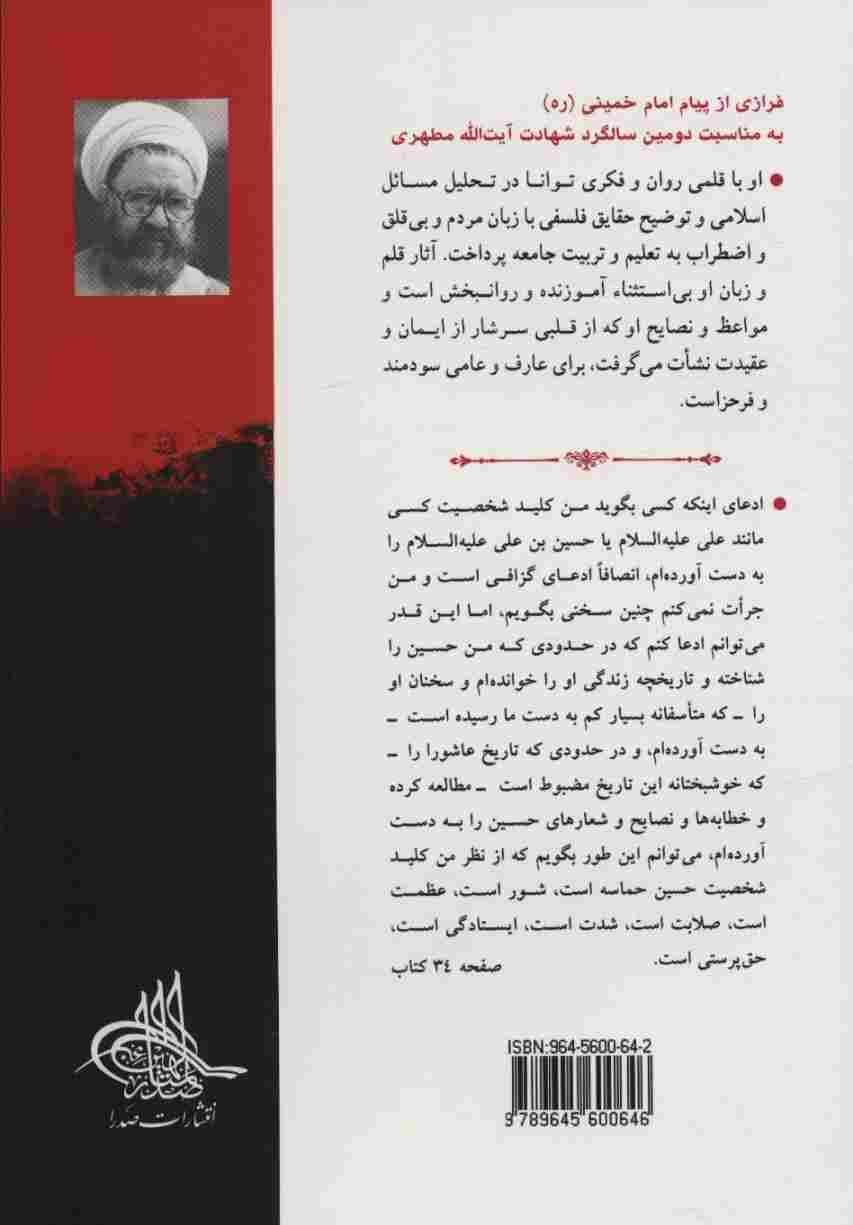 فرازی از پیام امام خمینی (ره)
به مناسبت دومین سالگرد شهادت آیت‌الله مطهری
● او با قلمی روان و فکری توانا در تحلیل مسائل
اسلامی و توضیح حقایق فلسفی با زبان مردم و بی‌قلق
و اضطراب به تعلیم و تربیت جامعه پرداخت. آثار قلم
و زبان او بی‌استثناء آموزنده و روانبخش است و
مواعظ و نصایح او که از قلبی سرشار از ایمان و
عقیدت نشأت می‌گرفت، برای عارف و عامی سودمند
و فرحزاست.
● ادعای اینکه کسی بگوید من کلید شخصیت کسی
مانند علی علیه‌السلام یا حسین بن علی علیه‌السلام را
به دست آورده‌ام، انصافاً ادعای گزافی است و من
جرأت نمی‌کنم چنین سخنی بگویم، اما این قدر
می‌توانم ادعا کنم که در حدودی که من حسین را
شناخته و تاریخچه زندگی او را خوانده‌ام و سخنان او
را ـ که متأسفانه بسیار کم به دست ما رسیده است ـ
به دست آورده‌ام، و در حدودی که تاریخ عاشورا را ـ
که خوشبختانه این تاریخ مضبوط است ـ مطالعه کرده
و خطابه‌ها و نصایح و شعارهای حسین را به دست
آورده‌ام، می‌توانم این طور بگویم که از نظر من کلید
شخصیت حسین حماسه است، شور است، عظمت
است، صلابت است، شدت است، ایستادگی است،
حق‌پرستی است.
صفحه ٣٤ کتاب
انتشارات صدرا
ISBN:964-5600-64-2
9 789645 600646